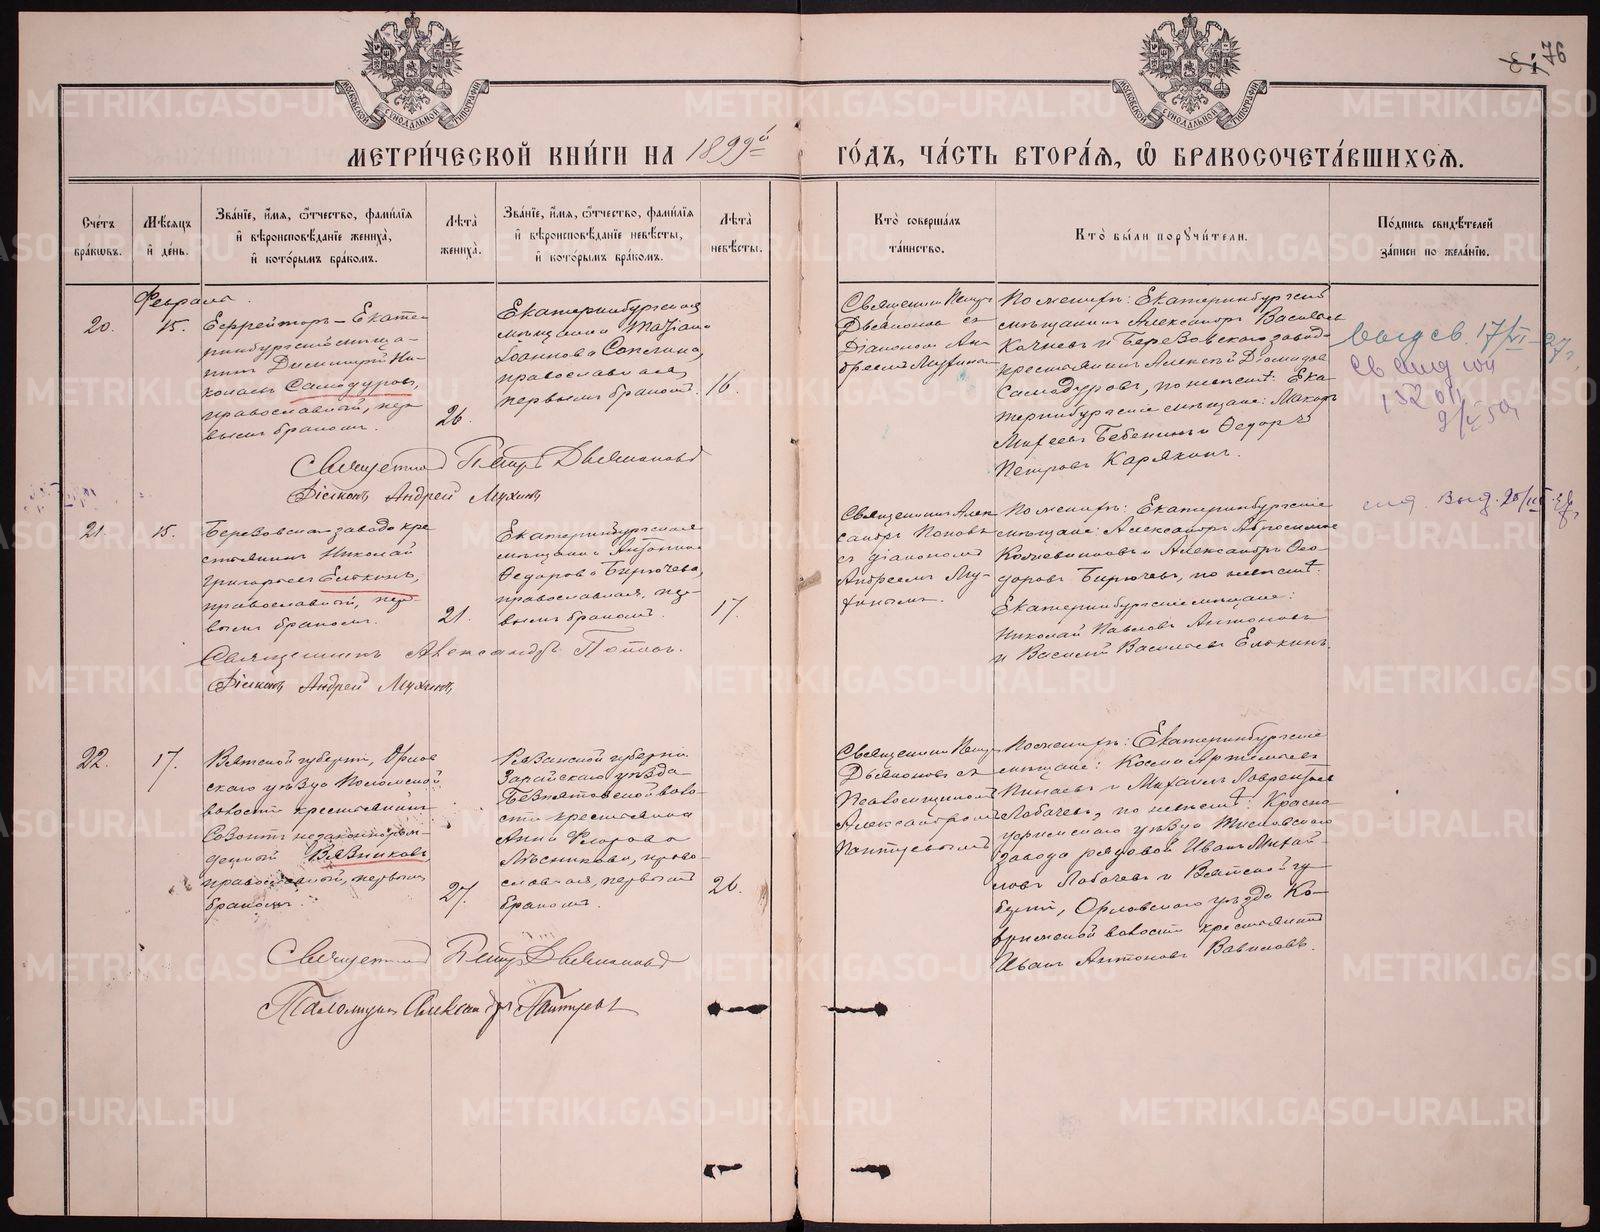 76
МОСКОВСКОЙ СѴНОДАЛЬНОЙ ТИПОГРАФІИ
МОСКОВСКОЙ СѴНОДАЛЬНОЙ ТИПОГРАФІИ
МЕТРИ́ЧЕСКОЙ КНИ́ГИ НА 1899й ГО́ДЪ, ЧА́СТЬ ВТОРА́Я, Ѡ БРАКОСОЧЕТА́ВШИХСЯ.
Сче́тъ бра́кѡвъ.
Мѣ́сяцъ и҆ де́нь.
Зва́нїе, и҆́мя, ѻ҆́тчество, фами́лїя и҆ вѣроисповѣ́данїе жениха̀, и҆ кото́рымъ бра́комъ.
Лѣта̀ жениха̀.
Зва́нїе, и҆́мя, ѻ҆́тчество, фами́лїя и҆ вѣроисповѣ́данїе невѣ́сты, и҆ кото́рымъ бра́комъ.
Лѣта̀ невѣ́сты.
Кто̀ соверша́лъ та́инство.
Кто̀ бы́ли пору́чи́тели.
По́дпись свидѣ́телей за́писи по жела́нїю.
Февраля.
20.
15.
Ефрейторъ - Екате-
ринбургскій мѣща-
нинъ Димитрій Ни-
колаевъ Самодуровъ,
православный, пер-
вымъ бракомъ.
26.
Екатеринбургская
мѣщанка
Іоаннова
православная,
первымъ бракомъ.
16.
Священникъ Петръ
Дьяконовъ съ
Діакономъ Ан-
дреемъ Мухинымъ
По женихѣ: Екатеринбургскій
мѣщанинъ Александръ Васильевъ
и Березовскаго завода
крестьянинъ Алексѣй Діомидовъ
Самодуровъ, по невѣстѣ: Ека-
теринбургскіе мѣщане: Макаръ
Михеевъ Бебенинъ и Ѳедоръ
Петровъ Карякинъ.
Священникъ Петръ Дьяконовъ
Діаконъ Андрей Мухинъ
21.
15.
Березовскаго завода кре-
стьянинъ Николай
Григорьевъ Елохинъ,
православный, пер-
вымъ бракомъ.
21.
Екатеринбургская
мѣщанка Антонина
Ѳедорова Бирючева,
православная, пер-
вымъ бракомъ.
17.
Священникъ Алек-
сандръ Поповъ
съ діакономъ
Андреемъ Му-
хинымъ.
По женихѣ: Екатеринбургскіе
мѣщане: Александръ Абросимовъ
и Александръ Ѳео-
доровъ Бирючевъ, по невѣстѣ:
Екатеринбургскіе мѣщане:
Николай Павловъ Антоновъ
и Василій Васильевъ Елохинъ.
Священникъ Александръ Поповъ.
Діаконъ Андрей Мухинъ
22.
17.
Вятской губерніи, Орлов-
скаго уѣзда Поломской
волости крестьянинъ
Созонтъ незаконнорож-
денный Вязниковъ,
православный, первымъ
бракомъ.
27.
Рязанской губерніи
Зарайскаго уѣзда
Безпятовской воло-
сти крестьянка
Анна Ѳедорова
Лѣсникова, право-
славная, первымъ
бракомъ.
26.
Священникъ Петръ
Дьяконовъ съ
Псаломщикомъ
Александромъ
По женихѣ: Екатеринбургскіе
мѣщане: Козма Артемьевъ
Пинаевъ и Михаилъ Лаврентьевъ
Лобачевъ, по невѣстѣ: Красно-
уфимскаго уѣзда Тисовскаго
завода рядовой Иванъ Михай-
ловъ Лобачевъ и Вятской гу-
берніи, Орловскаго уѣзда
волости крестьянинъ
Иванъ Антоновъ Вавиловъ.
Священникъ Петръ Дьяконовъ
Псаломщикъ Александръ